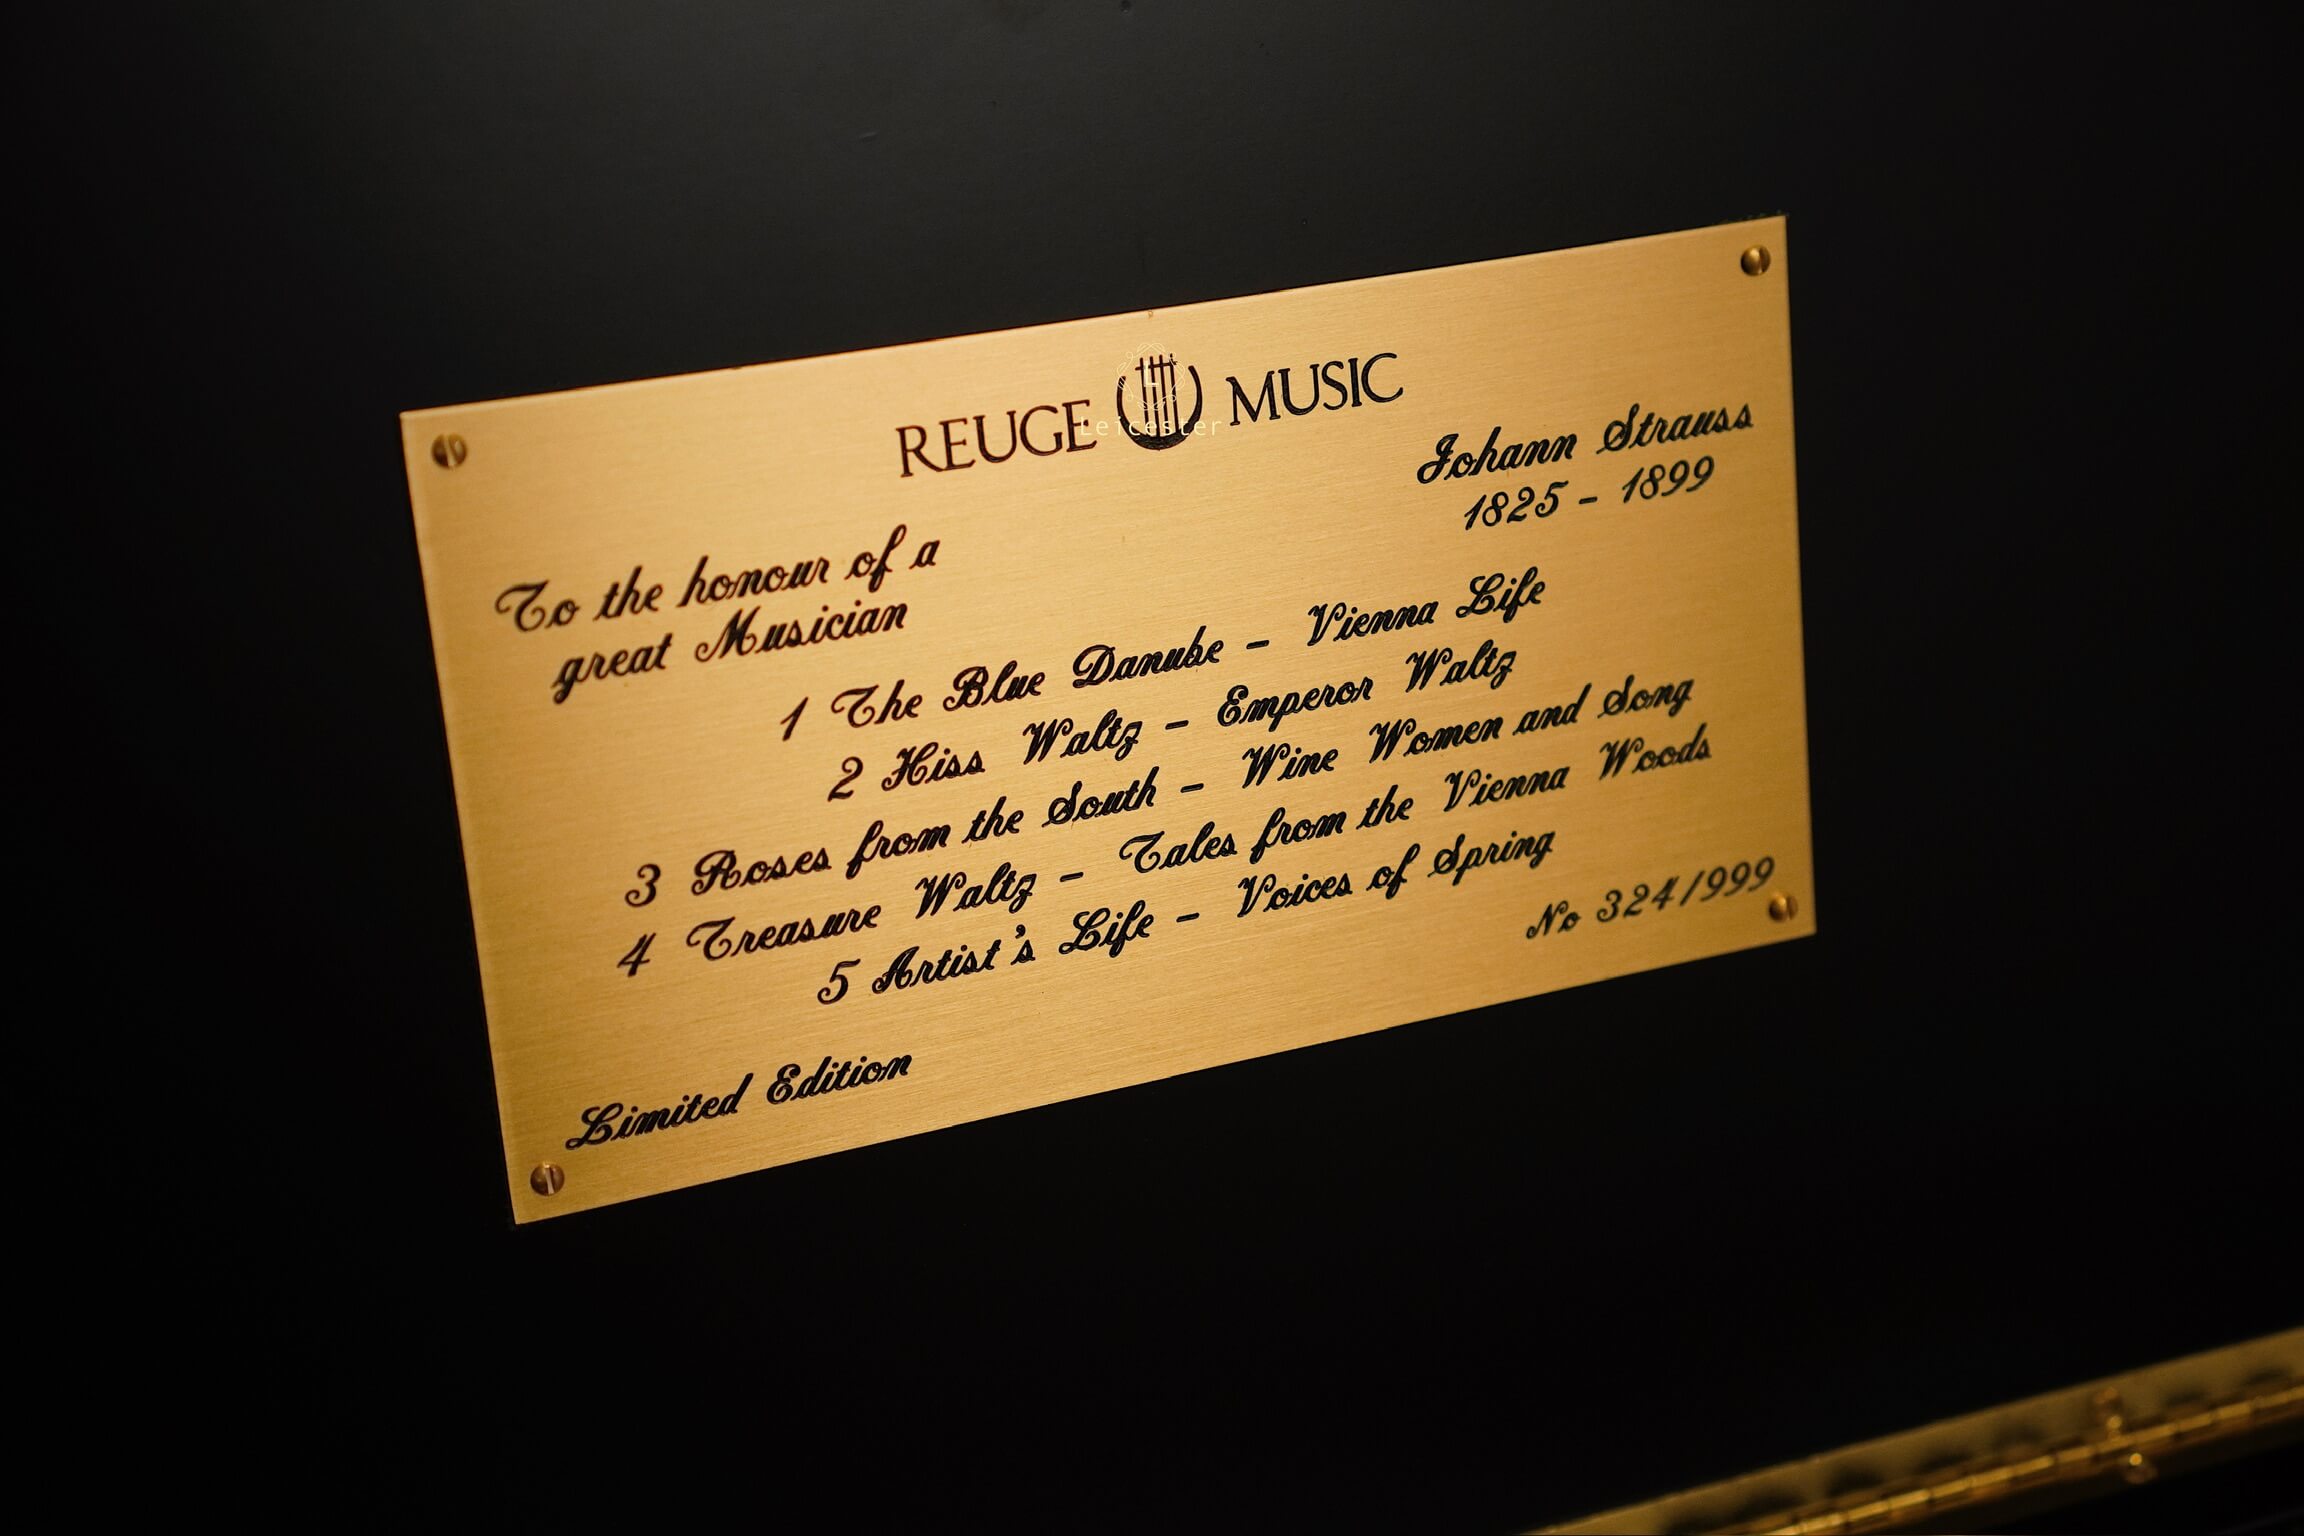 REUGE MUSIC
Leicester
Johann Strauss
1825 - 1899
To the honour of a
great Musician
1 The Blue Danube - Vienna Life
2 Hiss Waltz - Emperor Waltz
3 Roses from the South - Wine Women and Song
4 Treasure Waltz - Tales from the Vienna Woods
5 Artist's Life - Voices of Spring
No 324/999
Limited Edition